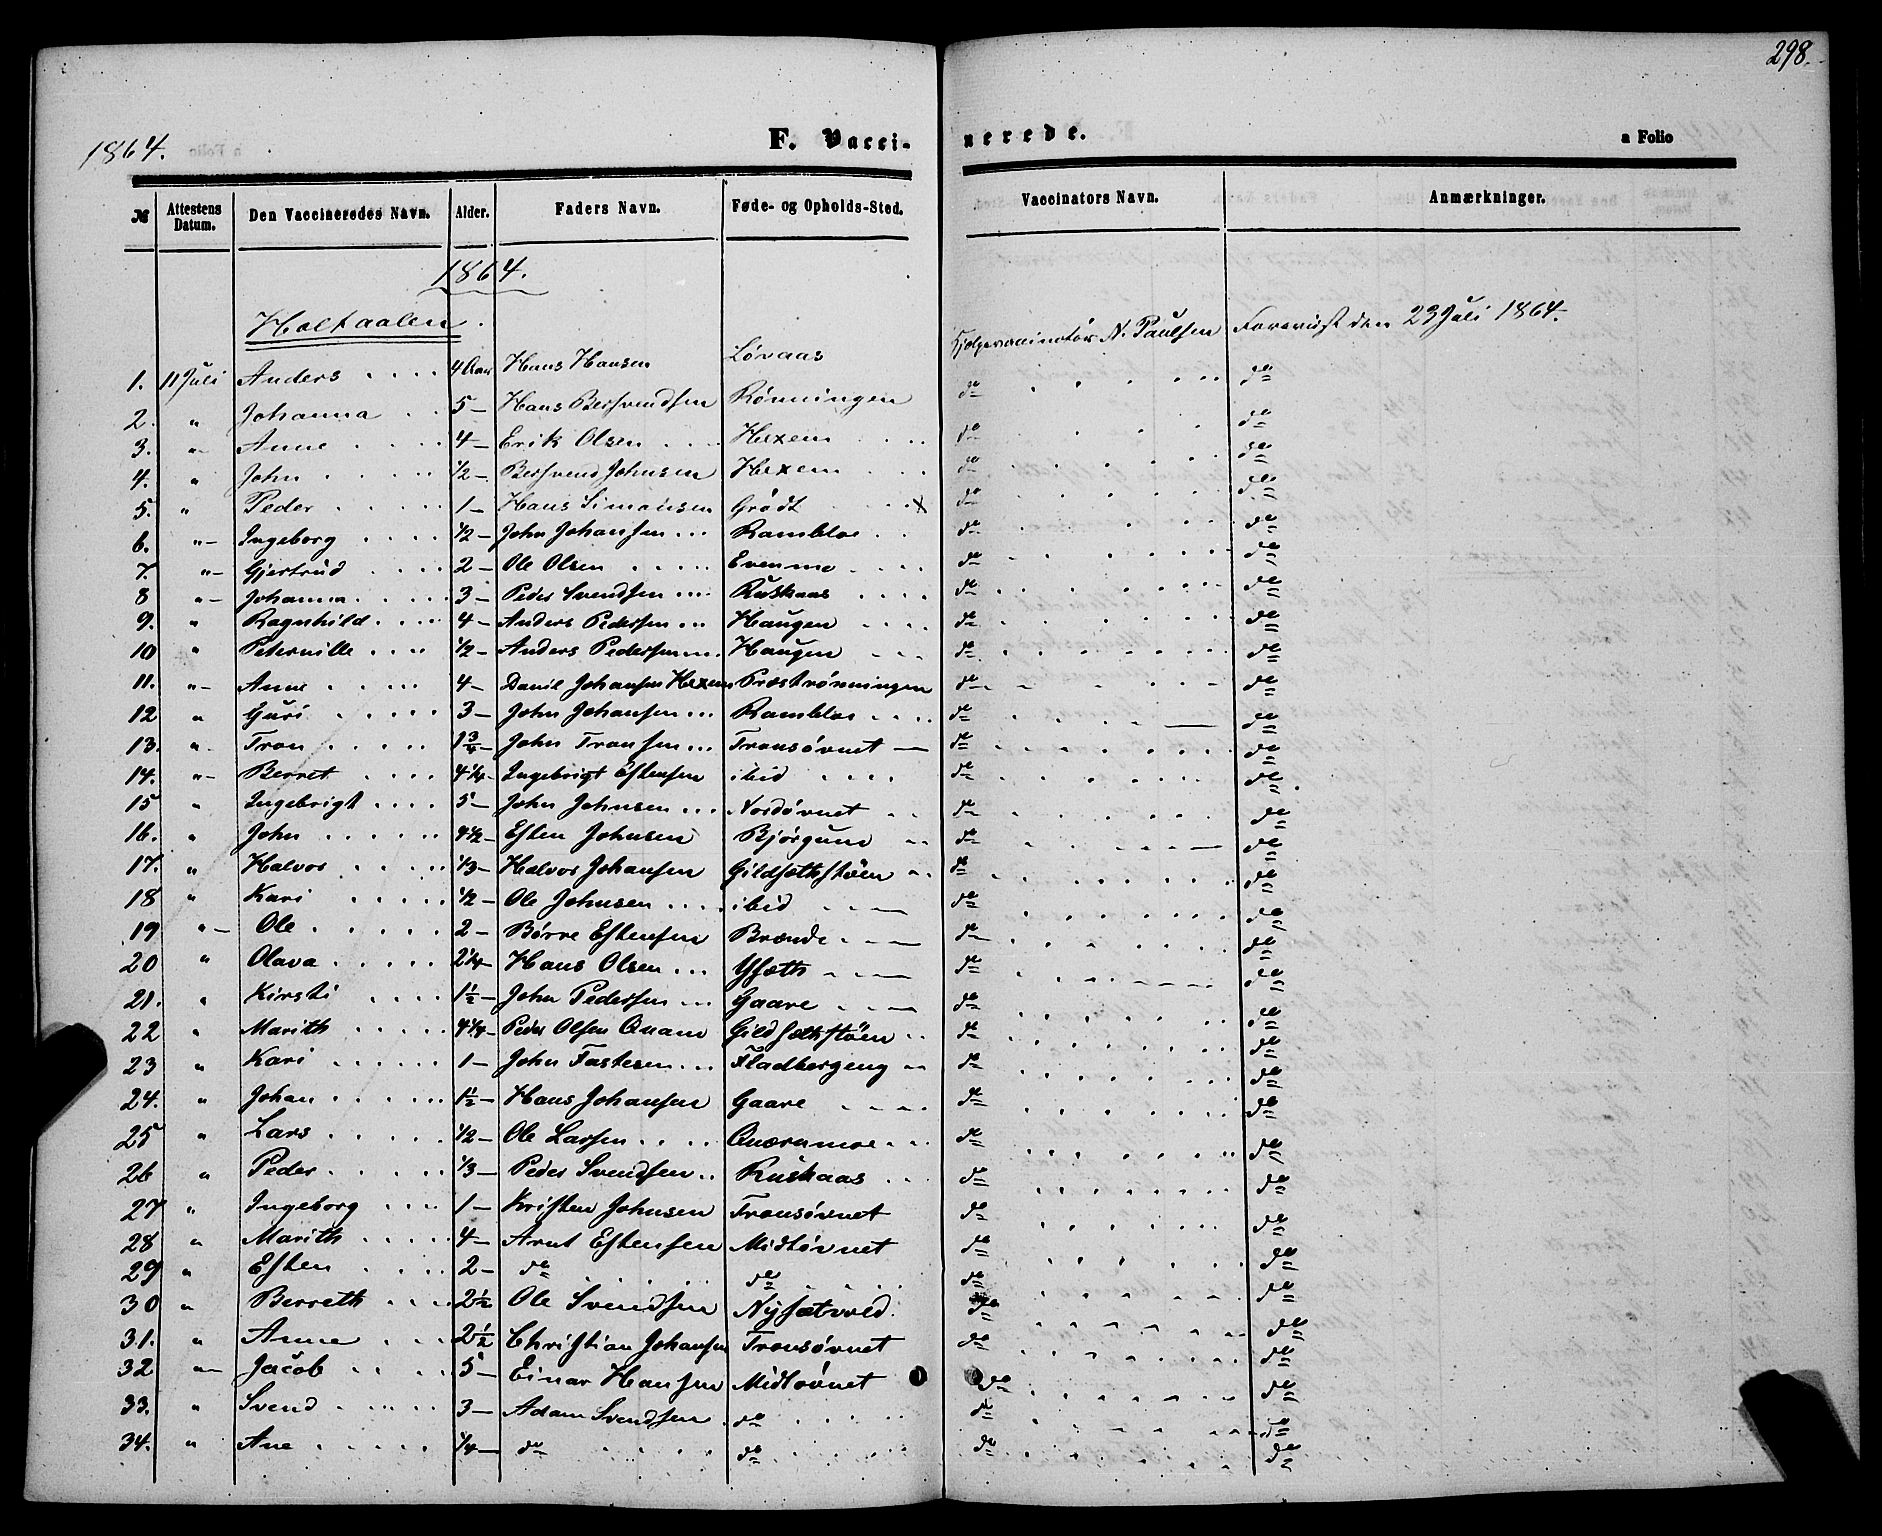 298.
1864. F. Vacci- nerede. a Folio
№ Attestens Datum. Den Vaccineredes Navn. Alder. Faders Navn. Føde- og Opholds-Sted. Vaccinators Navn. Anmærkninger.
1864.
Holtaalen.
1. 11 Juli Anders 4 Aar Hans Hansen Løvaas Hjelpevaccinatør N. Paulsen Foreviist den 23 Juli 1864.
2. " Johanna 5 - Hans Bersvendsen Rønningen do do
3. " Anne 4 - Erik Olsen Hexem do do
4. " John 1/2 - Bersvend Johnsen Hexem do do
5. " Peder 1 - Hans Simonsen Grødt x do do
6. " Ingeborg 1/2 - John Johansen Ramblos do do
7. " Gjertrud 2 - Ole Olsen Evenmo do do
8 " Johanna 3 - Peder Svendsen Kuskaas do do
9. " Ragnhild 4 - Anders Pedersen Haugen do do
10 " Peternille 1/2 - Anders Pedersen Haugen do do
11. " Anne 4 - Danil Johansen Hexem Præstrønningen do do
12 " Guri 3 - John Johansen Ramblos do do
13. " Tron 1 3/4 - John Tronsen Tronsøvnet do do
14. " Berret 4 1/4 - Ingebrigt Estensen ibid do do
15 " Ingebrigt 5 - John Johnsen Nordøvnet do do
16. " John 4 1/2 - Esten Johnsen Bjørgum do do
17. " Halvor 1/3 - Halvor Johansen Gildsethstøen do do
18 " Kari 1/2 - Ole Johnsen ibid do do
19 " Ole 2 - Børre Estensen Brænde do do
20 " Olava 2 1/4 - Hans Olsen Ysæth do do
21. " Kirsti 1 1/2 - John Pedersen Gaare do do
22 " Marith 4 1/4 - Peder Olsen Qvam Gildsethstøen do do
23 " Kari 1 - John Fastesen Fladbergeng do do
24. " Johan 1 1/2 - Hans Johansen Gaare do do
25 " Lars 1/2 - Ole Larsen Qværnmoe do do
26 " Peder 1/3 - Peder Svendsen Kuskaas do do
27 " Ingeborg 1 - Kristen Johnsen Tronsøvnet do do
28 " Marith 4 - Arnt Estensen Midtøvnet do do
29 " Esten 2 - do do do do
30 " Berreth 2 1/2 Ole Svendsen Nysætvold do do
31. " Anne 2 1/2 Christian Johansen Tronsøvnet do do
32 " Jacob 5 - Einar Hansen Midtøvnet do do
33. " Svend 3 - Adam Svendsen do do do
34. " Ane 1/4 - do do do do